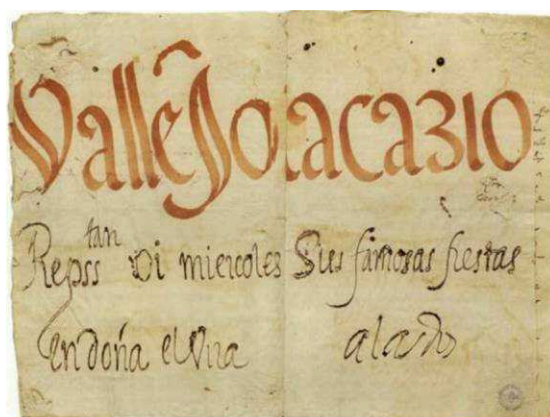 Vallejo acazio
Repsstan oi miercoles Sus famosas fiestas
en doña elvira a las dos